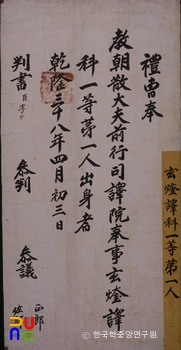 禮曹奉
敎朝散大夫前行司譯院奉事玄燈譯
科一等第一人出身者
乾隆三十八年四月初三日
判書臣李
參判
參議
正郎
玄燈譯科一等第一人
©한국학중앙연구원